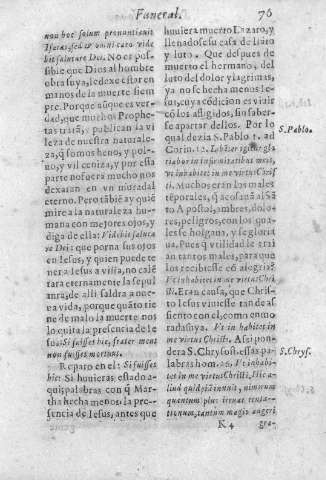 Funeral. 76
non hoc solum pronuntiavit
Isaias, sed & omni caro vide
bit salutare Dei. No es pos-
sible que Dios al hombre
obra suya, le dexe estar en
manos de la muerte siem
pre. Porque aũque es ver-
dad, que muchos Prophe-
tas tratã, y publican la vi-
leza de nuestra naturaleza,
q̃ somos heno, y pol-
no, y vil ceniza, y por esta
parte no fuera mucho nos
dexaran en vn muradal
eterno. Pero tãbiẽ ay quiẽ
mire a la naturaleza hu-
mana con mejores ojos, y
diga de ella: Videbit saluta
re Dei: que porna sus ojos
en Iesus, y quien puede te
nera Iesus a villa, no calẽ
tara eternamente la sepul
anra, de alli saldra a nue-
ua vida, porque quãto tie
ne de malo la muerte nos
lo quita la presencia de Ie
sus, Si fuisses hic, frater meus
non fuisset mortuus.
Reparo en el: Si fuisses
hic: Si huuieras estado a-
qui; palabras con q̃ Mar-
tha hecha menos la pre-
sencia de Iesus, antes que
huuiera muerto Lazaro, y
llenadose su casa de llãto
y luto. Que despues de
muerto el hermano, del
luto del dolor y lagrimas,
ya no se hecha menos Ie-
sus, cuya cõdicion es viuir
cõ los affligidos, sin saber-
se apartar dellos. Por lo
qual dezia S. Pablo 2. ad
Corin. 12. Libẽter igitur glo
riabor in infirmitatibus meis,
vt inhabitet in me virtus Christ
ti. Mucho eran los males
tẽporales, q̃ acosauã al Sã
to Apostol, ambres, dolo-
res, peligros, con los qua-
les se holgaua, y se gloria
ua. Pues q̃ vtilidad le traĩ
an tantos males, para que
los recibiesse cõ alegria?
Vt inhabitet in me virtus Christi.
Eran causa, que Chris-
to Iesus viniesse tan de as
siento en el, como en enno
rada suya. Vt inhabitet in
me virtus Christi. Assi pon
dera S. Chrysost. essas pa-
labras hom. 26. Vt inhabi-
tet in me virtus Christi. Hic a-
liud quiddã innuit, nimirum
quantum plus irruae tenta-
tionum, tantum magis augeri
S. Pablo.
S. Chrys.
K 4 gra-